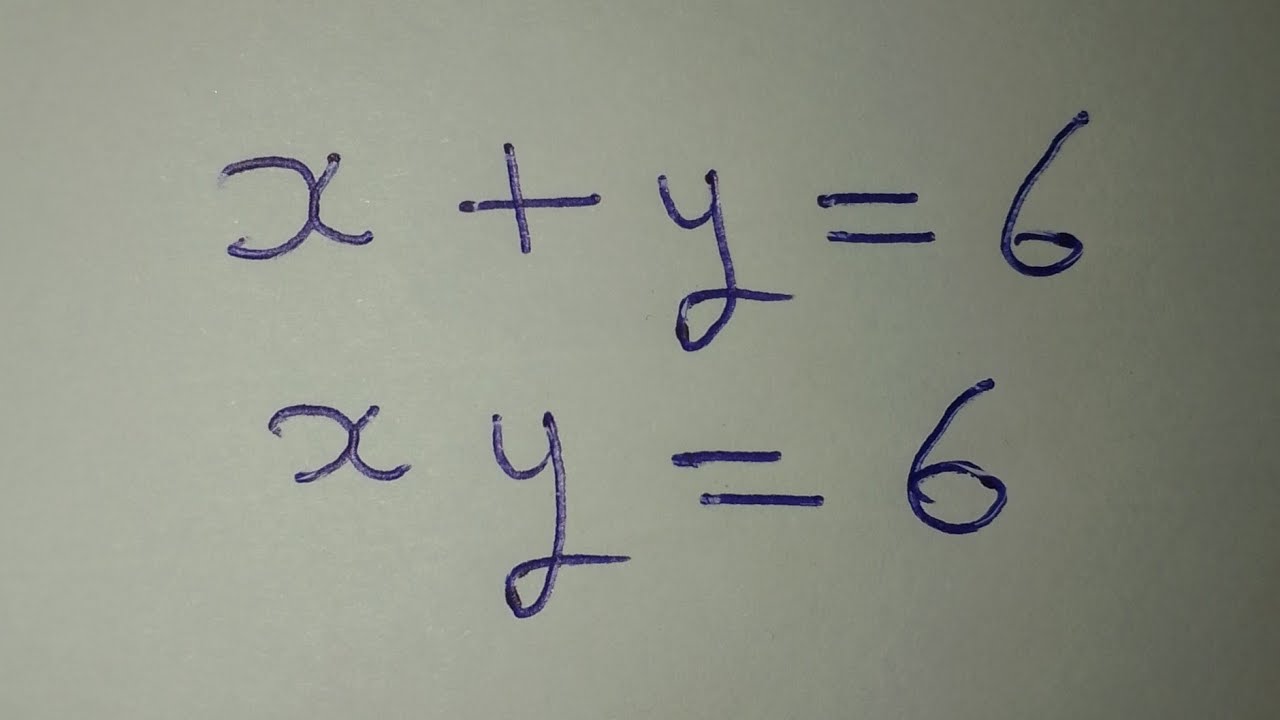 x + y = 6
x y = 6